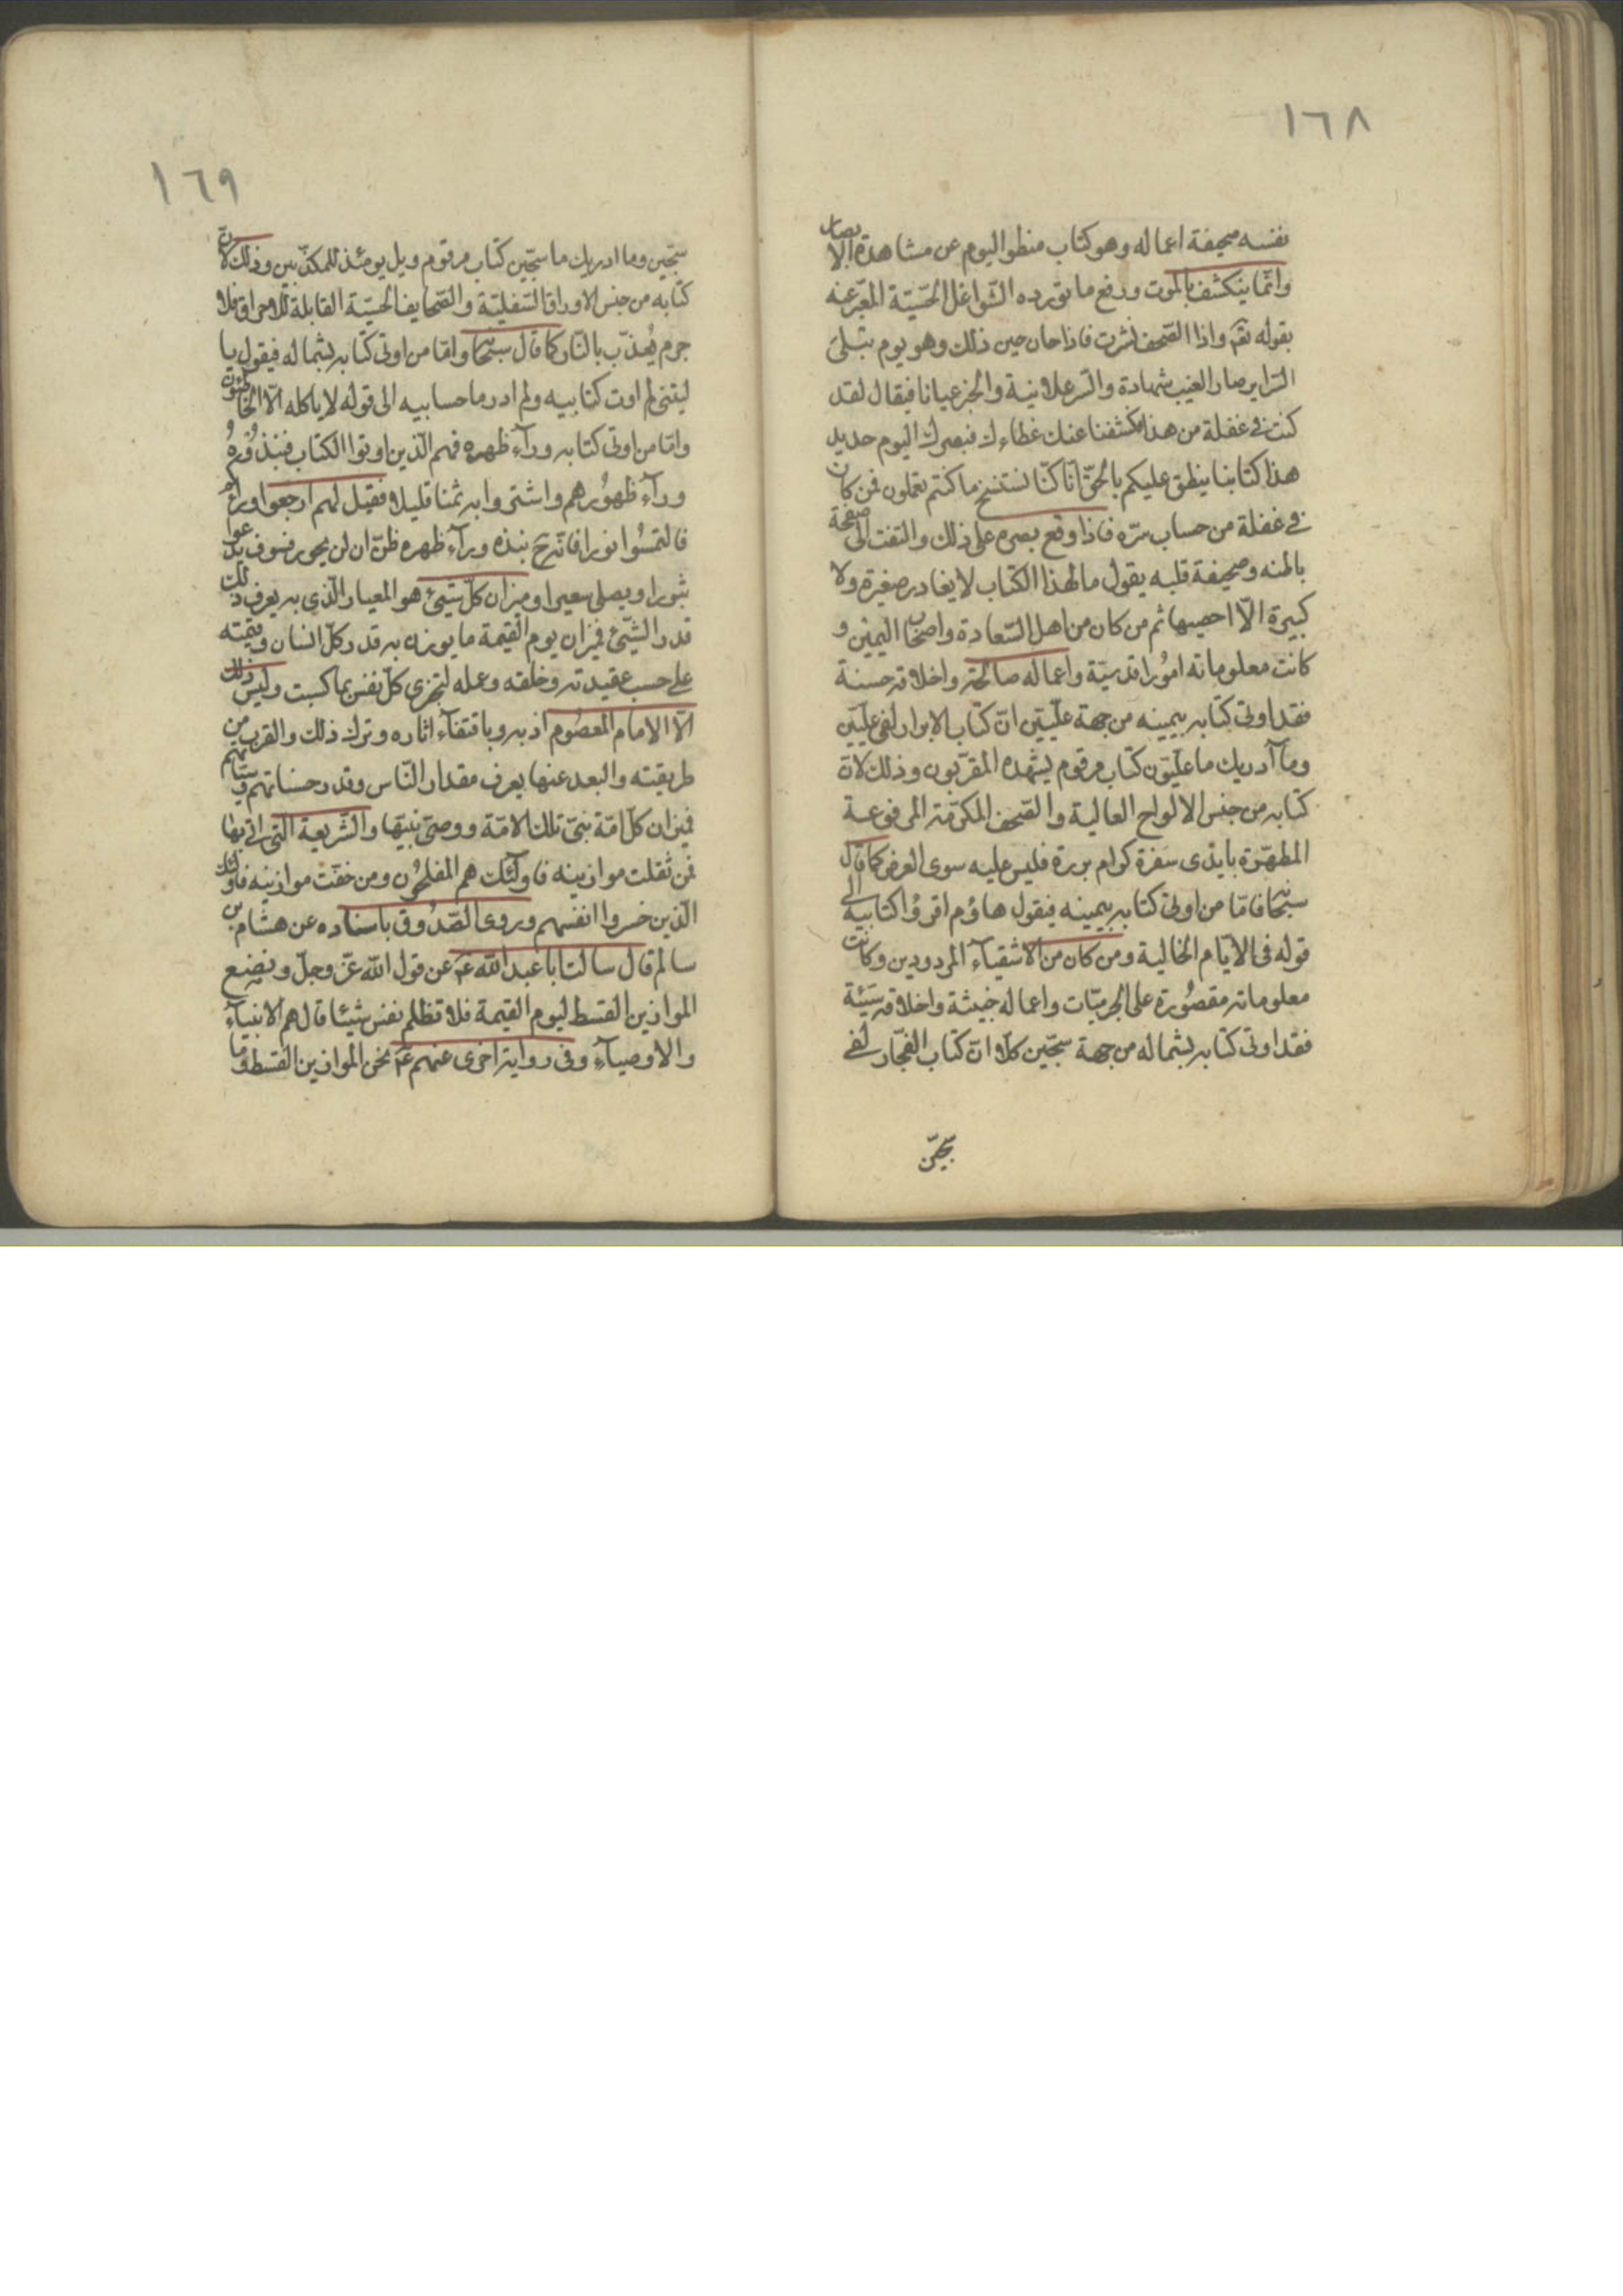 ١٦٨
نفسه صحيفة اعماله وهو كتاب منطو اليوم عن مشاهدة الابصار
وانّما ينكشف بالموت ورفع ما يورده الشّواغل الحسّيّة المعبّر عنه
بقوله تعۤ واذا الصّحف نشرت فاذا حان حين ذلك وهو يوم تبلى
السّراير صار الغيب شهادة والسّر علانية والخبر عيانا فيقال لقد
كنت فى غفلة من هذا فكشفنا عنك غطاءك فبصرك اليوم حديد
هذا كتابنا ينطق عليكم بالحقّ انّا كنّا نستنسخ ما كنتم تعملون فمن كان
فى غفلة من حساب سرّه فاذا وقع بصره على ذلك والتفت الى صفحة
باطنه وصحيفة قلبه يقول ما لهذا الكتاب لا يغادر صغيرة ولا
كبيرة الّا احصيها ثم من كان من اهل السّعادة واصحاب اليمين و
كانت معلوماته امُورا قدسيّة واعماله صالحة واخلاقه حسنة
فقد اوتى كتابه بيمينه من جهة علّيّين انّ كتاب الابرار لفى علّيّين
وما آدريك ما علّيّون كتاب مرقوم يشهده المقرّبون وذلك لانّ
كتابه من جنس الالواح العالية والصّحف المكرّمة المرفوعة
المطهّرة بايدى سفرة كرام بررة فليس عليه سوى العرض كما قال
سبحانه فامّا من اوتى كتابه بيمينه فيقول هاؤم اقرؤا كتابيه الى
قوله فى الايّام الخالية ومن كان من الاشقياء المردودين وكانت
معلوماته مقصُورة على الجرميّات واعماله خبيثة واخلاقه سيّئة
فقد اوتى كتابه بشماله من جهة سجّين كلّا انّ كتاب الفجّار لفى
سجّين
١٦٩
سجّين وما ادريك ما سجّين كتاب مرقوم ويل يومئذ للمكذّبين وذلك لانّ
كتابه من جنس الاوراق السّفليّة والصّحايف الحسّيّة القابلة للاحراق فلا
جرم يُعذّب بالنّار كما قال سبحانه وامّا من اوتى كتابه بشماله فيقول يا
ليتنى لم اوت كتابيه ولم ادر ما حسابيه الى قوله لا ياكله الّا الخاطئون
وامّا من اوتى كتابه ورآء ظهره فهم الّذين اوتوا الكتاب فنبذُوُه
ورآء ظهُورهم واشتروا به ثمنا قليلا فقيل لهم ارجعوا ورائكم
فالتمسُوا نورا فانّه نبذه ورآء ظهره ظنّ ان لن يحور فسوف يدعوا
ثبورا ويصلى سعيرا وميزان كلّ شيئ هو المعيار الّذى به يعرف ذلك
قدر الشّيئ فميزان يوم القيمة ما يوزن به قدر كلّ انسان وقيمته
على حسب عقيدته وخلقه وعمله لتجزى كلّ نفس بما كسبت وليس ذلك
الّا الامام المعصُوم اذ به وباقتفآء اثاره وترك ذلك والقرب من
طريقته والبعد عنها يعرف مقدار النّاس وقدر حسناتهم وسيّئاتهم
فميزان كلّ امّة نبىّ تلك الامّة ووصىّ نبيّها والشّريعة الّتى اتى بها
فمن ثقلت موازينه فاولئك هم المفلحُون ومن خفّت موازينه فاولئك
الّذين خسروا انفسهم وروى الصّدُوق باسناده عن هشام بن
سالم قال سالت ابا عبد اللّٰه عۤ عن قول اللّٰه عزّ وجلّ ونضع
الموازين القسط ليوم القيمة فلا تظلم نفس شيئا قال هم الانبيآء
والاوصيآء وفى رواية اخرى عنهم عۤ نحن الموازين القسط وما